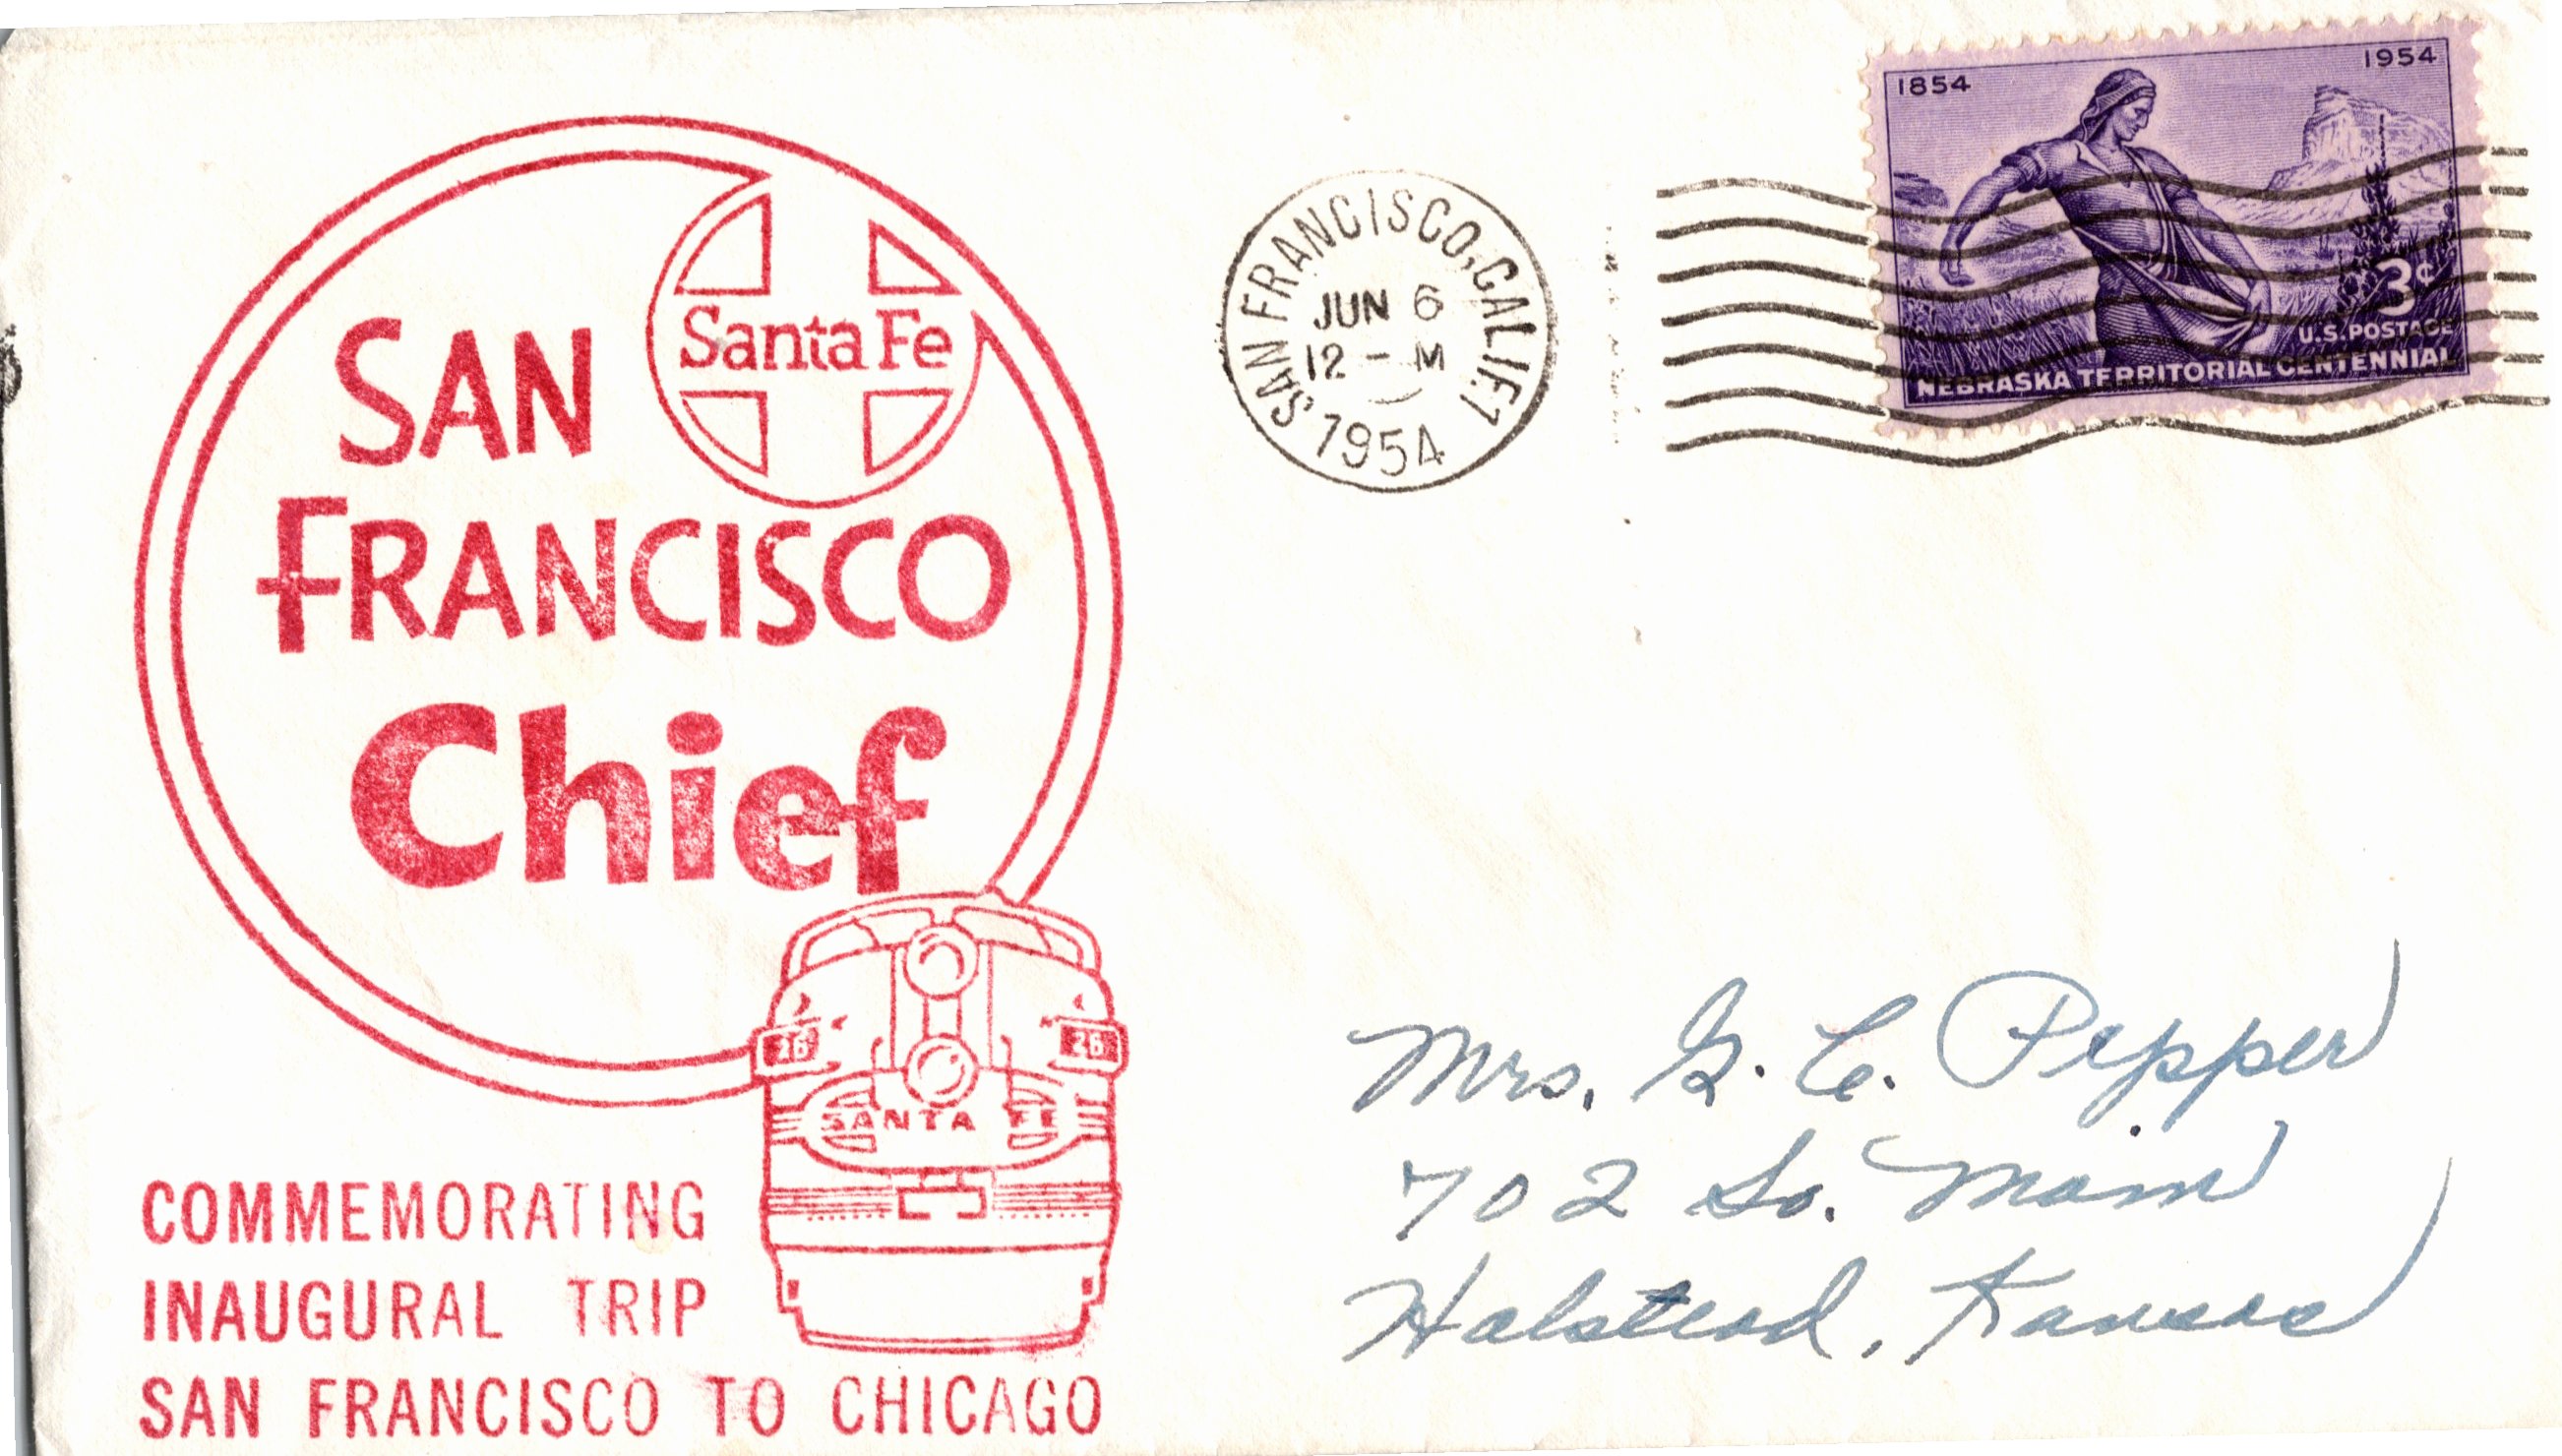 SAN
FRANCISCO
Chief
Santa Fe
26 26
SANTA FE
COMMEMORATING
INAUGURAL TRIP
SAN FRANCISCO TO CHICAGO
SAN FRANCISCO, CALIF. 1
JUN 6
12 - M
1954
1854 1954
3¢
U.S. POSTAGE
NEBRASKA TERRITORIAL CENTENNIAL
Mrs. G. C. Pepper
702 So. Main
Halstead, Kansas